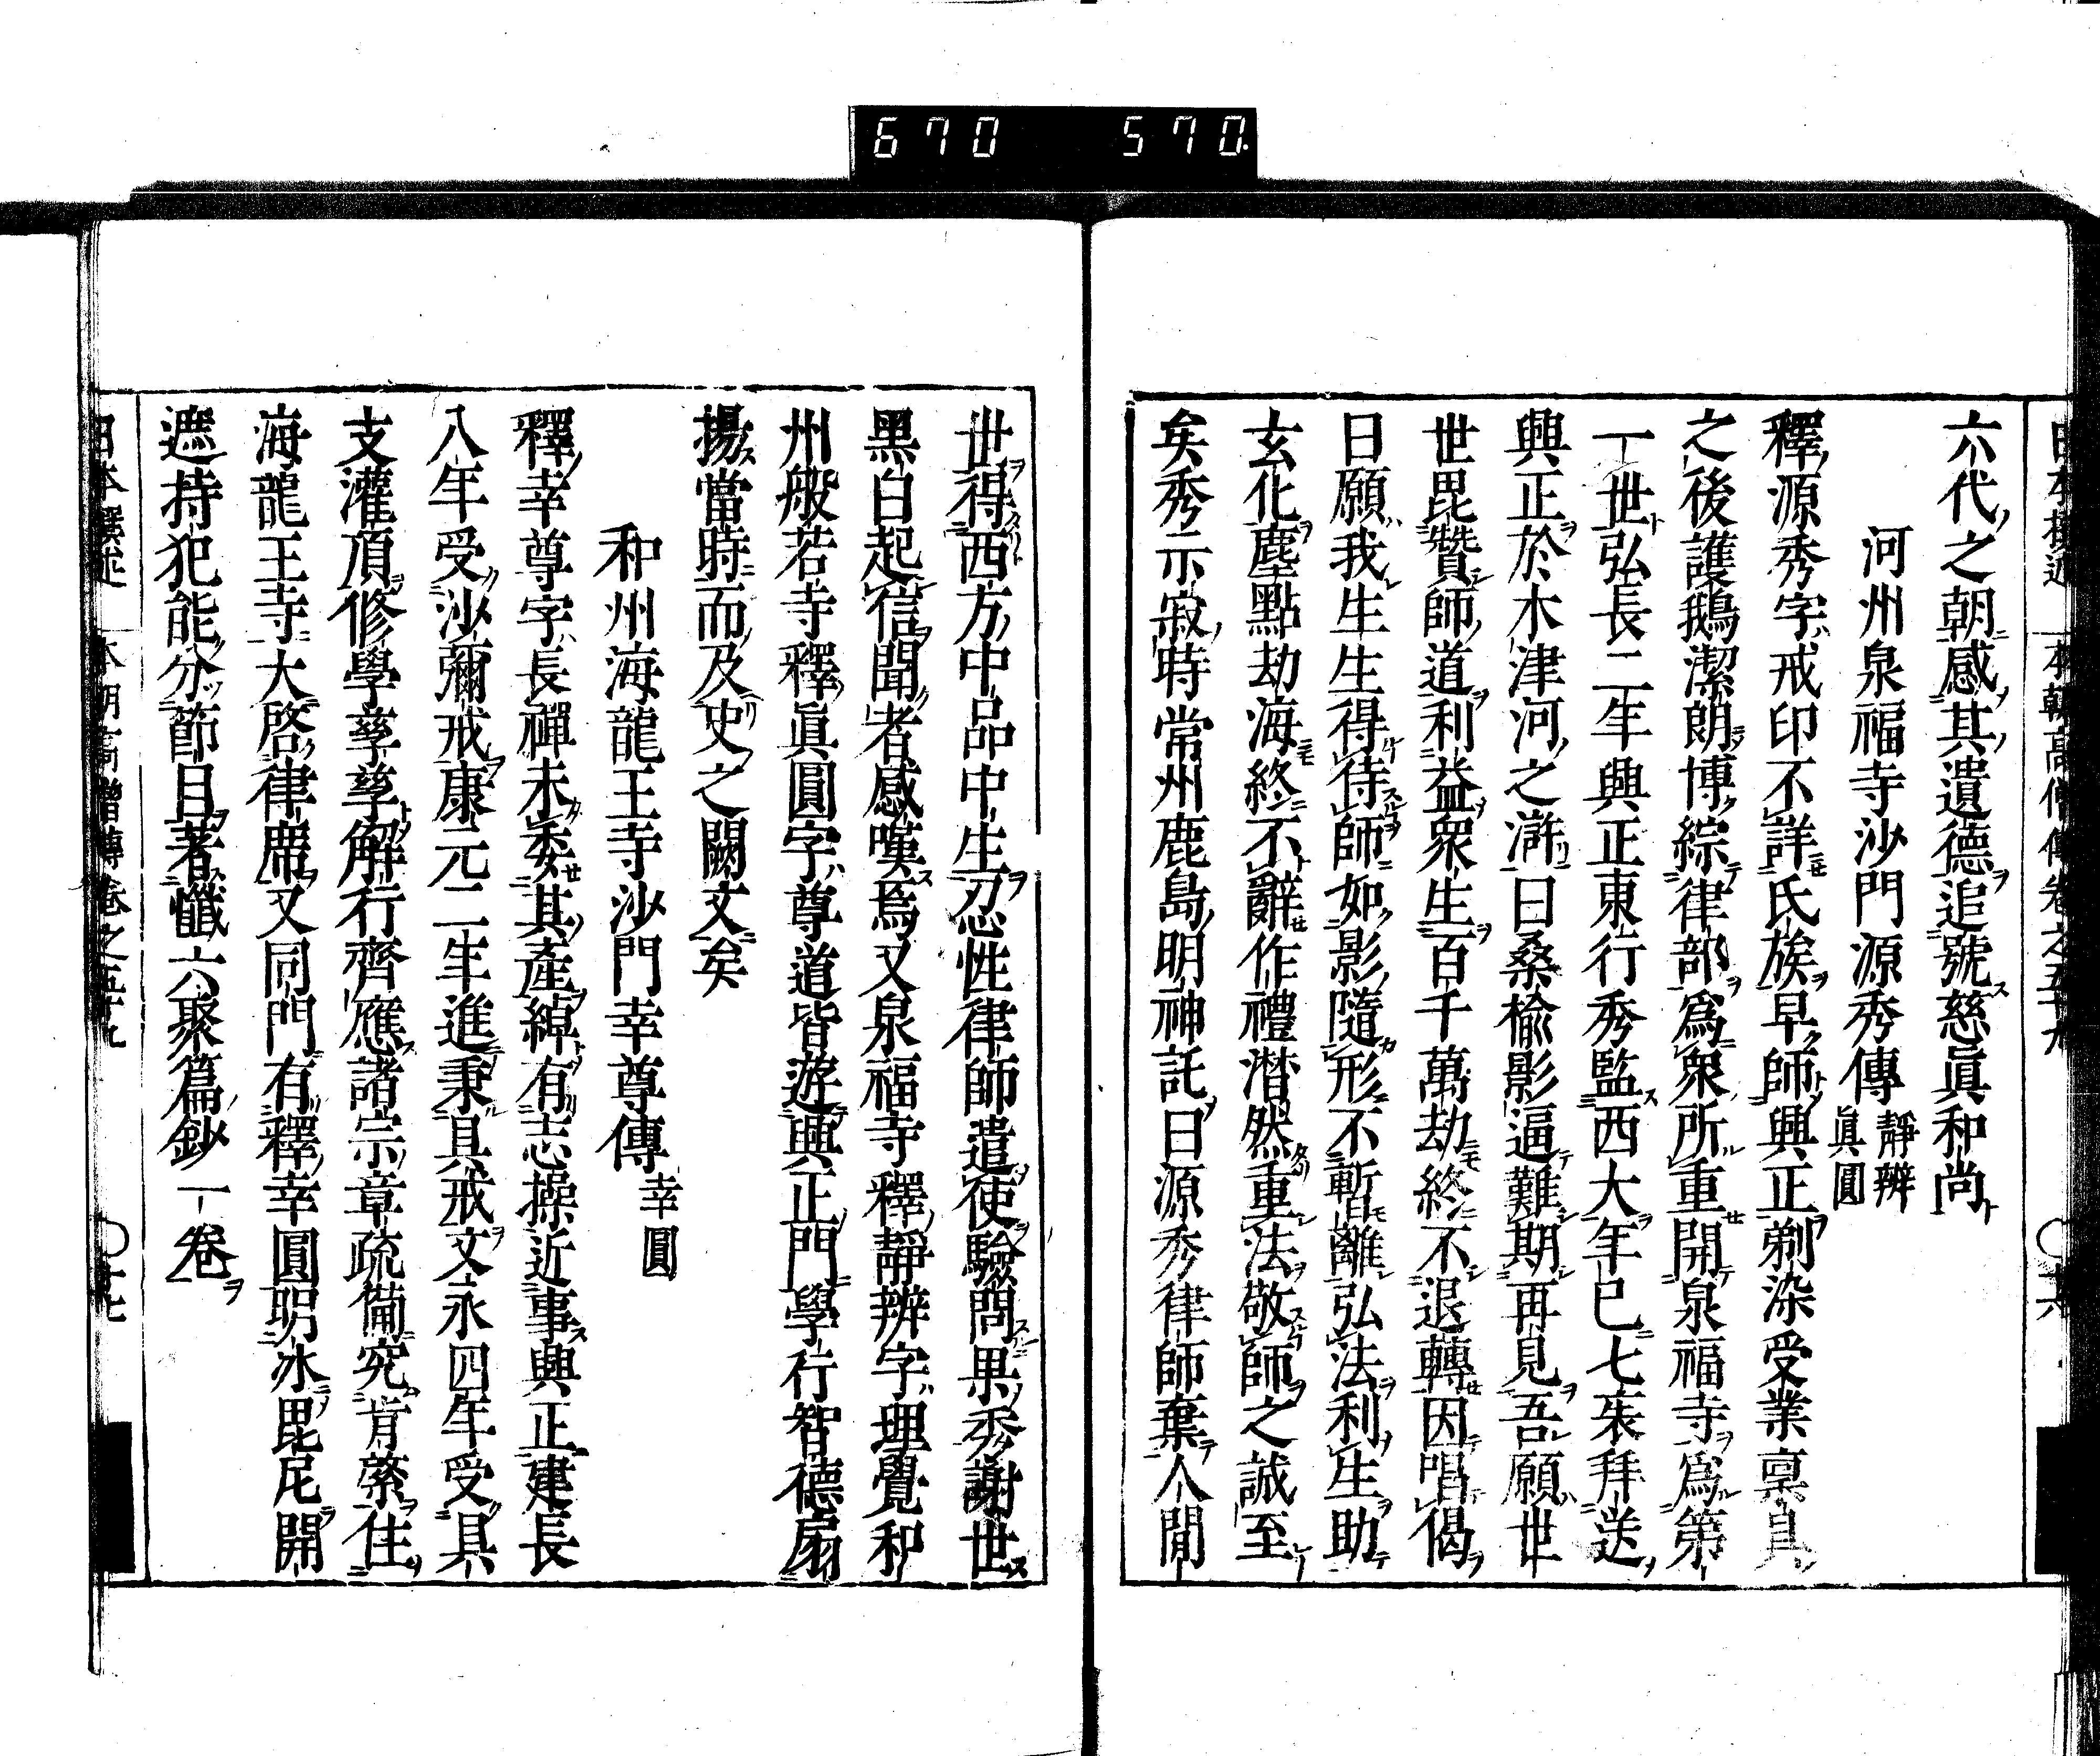 670 570
六代之朝感其遺德追號慈眞和尚
河州泉福寺沙門源秀傳 靜辨 眞圓
釋源秀字戒印不詳氏族早師興正剃染受業稟具
之後護鵝潔朗博綜律部爲衆所重開泉福寺爲第
一世弘長二年興正東行秀監西大年已七袠拜送
興正於木津河之滸曰桑楡影逼難期再見吾願世
世毘贊師道利益衆生百千萬劫終不退轉因唱偈
曰願我生生得待師如影隨形不暫離弘法利生助
玄化塵點劫海終不辭作禮潸然重法敬師之誠至
矣秀示寂時常州鹿島明神託曰源秀律師棄人間
世得西方中品中生忍性律師遣使驗問果秀謝世
黑白起信聞者感嘆焉又泉福寺釋靜辨字理覺和
州般若寺釋眞圓字尊道皆遊興正門學行智德扇
揚當時而及史之闕文矣
和州海龍王寺沙門幸尊傳 幸圓
釋幸尊字長禪未委其產綽有志操近事興正建長
八年受沙彌戒康元二年進秉具戒文永四年受具
支灌頂修學孳孳解行齊應諸宗章疏備究肯綮住
海龍王寺大啓律席又同門有釋幸圓明冰毘尼開
遮持犯能分節目著懺六聚篇鈔一卷
日本撰述 本朝高僧傳卷之五十九 〇十七